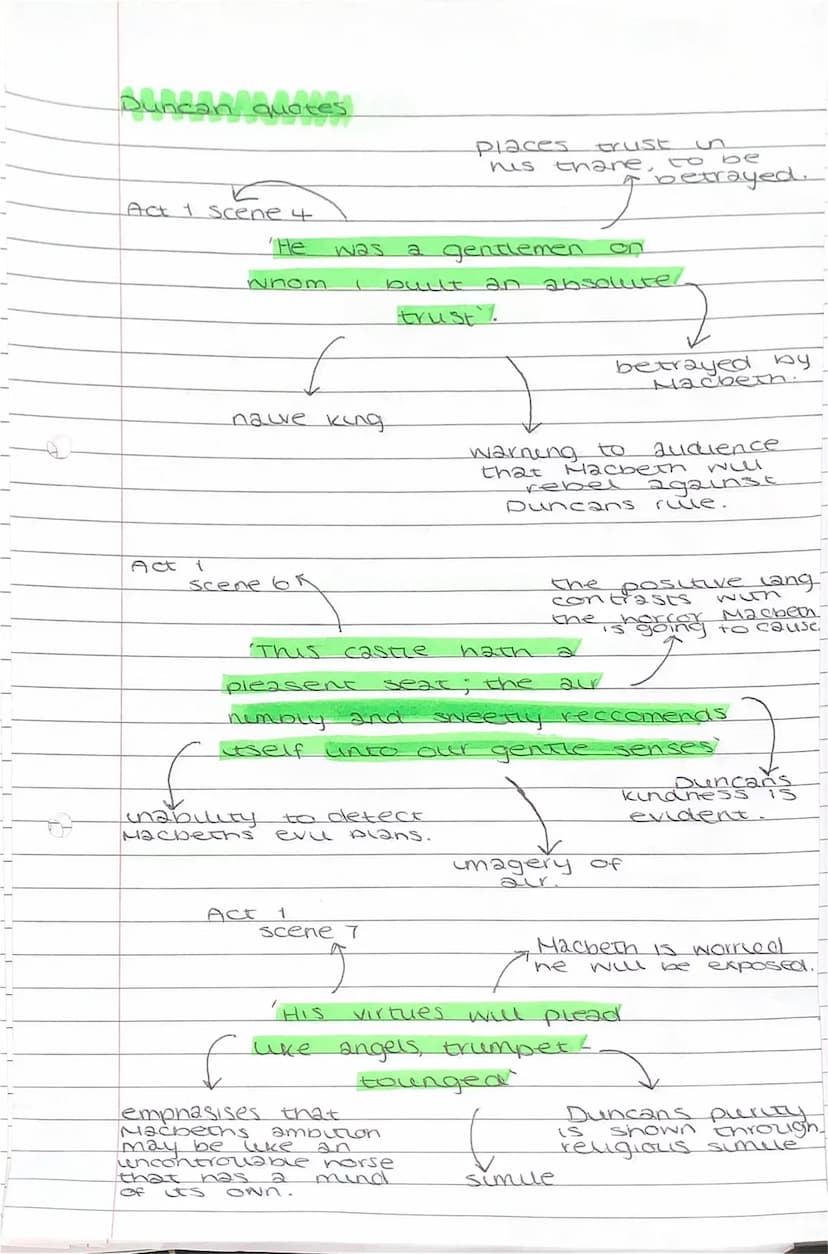 Duncan quotes
places trust in
his thane, to be
betrayed.
Act 1 scene 4
'He was a gentlemen on
whom I built an absolute
trust'.
betrayed by
Macbeth.
naive king
warning to audience
that Macbeth will
rebel against
Duncans rule.
Act 1
scene 6
the positive lang
contrasts with
the horror Macbeth
is going to cause
'This castle hath a
pleasent seat; the air
nimbly and sweetly reccomends
itself unto our gentle senses'
Duncans
kindness is
evident.
inability to detect
Macbeths evil plans.
imagery of
air.
Act 1
scene 7
Macbeth is worried
he will be exposed.
'His virtues will plead
like angels, trumpet-
tounged'
emphasises that
Macbeths ambition
may be like an
uncontrollable horse
that has a mind
of its own.
simile
Duncans purity
is shown through
religious simile